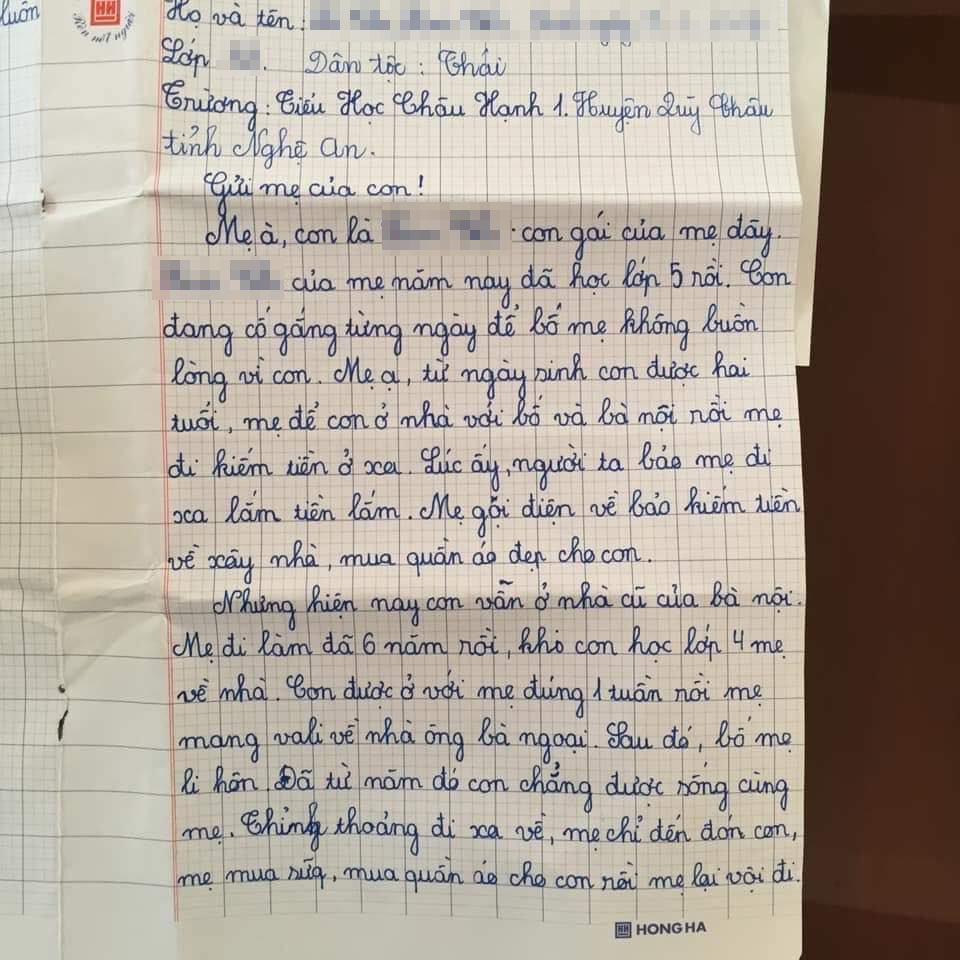 luôn
Rèn nét người
Họ và tên :
Lớp . Dân tộc : Thái
Trường : Tiểu Học Châu Hạnh 1. Huyện Quỳ Châu
tỉnh Nghệ An.
Gửi mẹ của con !
Mẹ à, con là con gái của mẹ đây.
của mẹ năm nay đã học lớp 5 rồi. Con
đang cố gắng từng ngày để bố mẹ không buồn
lòng vì con. Mẹ ạ, từ ngày sinh con được hai
tuổi, mẹ để con ở nhà với bố và bà nội rồi mẹ
đi kiếm tiền ở xa. Lúc ấy, người ta bảo mẹ đi
xa lắm tiền lắm. Mẹ gọi điện về bảo kiếm tiền
về xây nhà, mua quần áo đẹp cho con.
Nhưng hiện nay con vẫn ở nhà cũ của bà nội.
Mẹ đi làm đã 6 năm rồi, khi con học lớp 4 mẹ
về nhà. Con được ở với mẹ đúng 1 tuần rồi mẹ
mang vali về nhà ông bà ngoại. Sau đó, bố mẹ
li hôn. Đã từ năm đó con chẳng được sống cùng
mẹ. Thỉnh thoảng đi xa về, mẹ chỉ đến đón con,
mẹ mua sữa, mua quần áo cho con rồi mẹ lại vội đi.
HH HONG HA